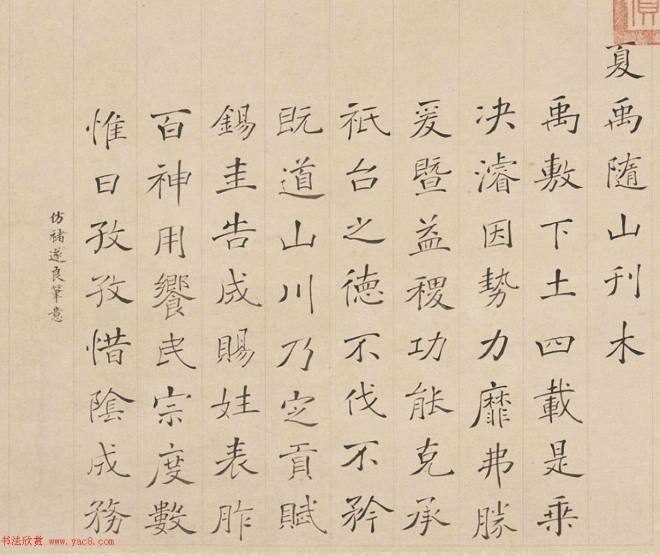 夏禹隨山刊木
禹敷下土四載是乗
决濬因勢力靡弗勝
爰曁益稷功能克承
祇台之德不伐不矜
既道山川乃定貢賦
錫圭告成賜姓表胙
百神用饗民宗度數
惟日孜孜惜陰成務
仿褚遂良筆意
书法欣赏 www.yac8.com